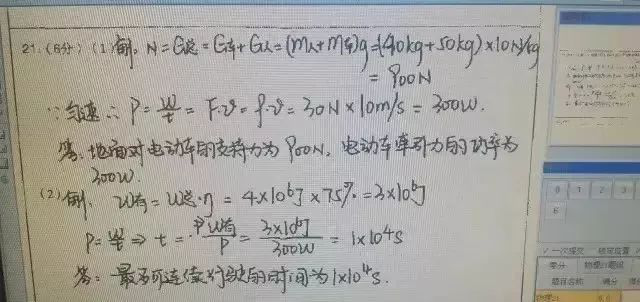 21.(6分) (1)解. N=G总=G车+G人=(m人+m车)g=(40kg+50kg)×10N/kg
=900N
∵匀速∴P=W/t=F·v=f·v=30N×10m/s=300W.
答:地面对电动车的支持力为900N,电动车牵引力的功率为
300W.
(2)解. W有=W总·η=4×10⁶J×75%=3×10⁶J
P=W/t⇒t=W有/P=3×10⁶J/300W=1×10⁴s
答:最多可连续行驶的时间为1×10⁴s.
0 1 2 3
6
一次提交